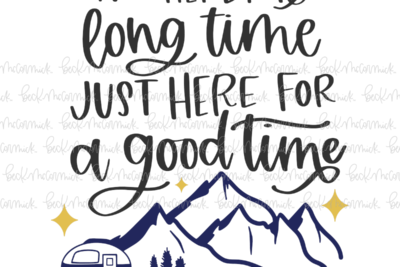 long time
JUST HERE FOR
a good time